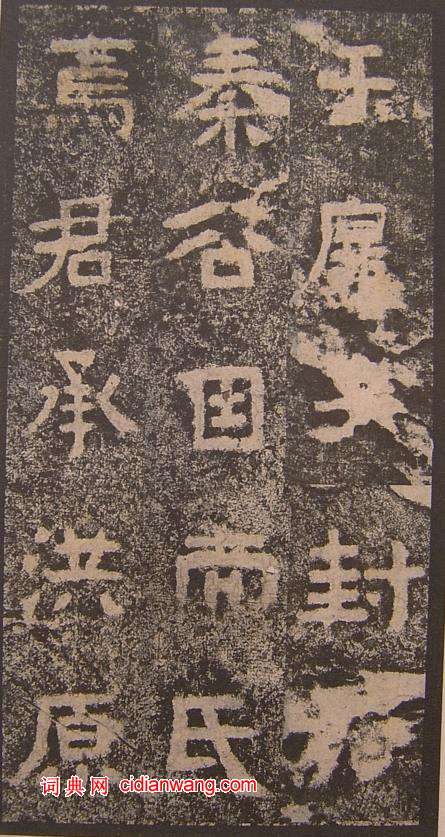 王封
秦谷因而氏
焉君承洪原
词典网 cidianwang.com